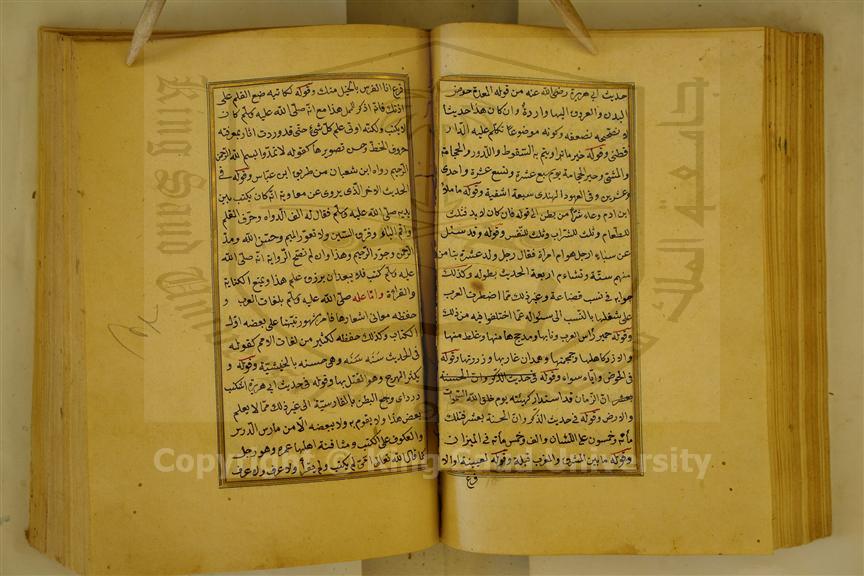 حديث ابي هريرة رضي الله عنه من قوله المعدة حوض
البدن والعروق اليها واردة وان كان هذا حديثا
لا نصححه لضعفه وكونه موضوعا تكلم عليه الدار
قطني وقوله خير ما تداويتم به السعوط واللدود والحجامة
والمشي وخير الحجامة يوم سبع عشرة وتسع عشرة واحدى
وعشرين وفي العود الهندي سبعة اشفية وقوله ما ملأ
ابن ادم وعاء شرا من بطن الى قوله فان كان لا بد فثلث
للطعام وثلث للشراب وثلث للنفس وقوله وقد سئل
عن سباء ارجل هو ام امراة فقال رجل ولد عشرة تيامن
منهم ستة وتشاءم اربعة الحديث بطوله وكذلك
جوابه في نسب قضاعة وغير ذلك مما اضطرت العرب
على شغلها بالنسب الى سؤاله عما اختلفوا فيه من ذلك
وقوله حمير راس العرب ونابها ومذحج هامتها وغلصمتها
والازد كاهلها وجمجمتها وهمدان غاربها وذروتها وقوله
في الحوض وزواياه سواء وقوله في حديث الذكر وان الحسنة
بعشر ان الزمان قد استدار كهيئته يوم خلق الله السموات
والارض وقوله في حديث الذكر وان الحسنة بعشر فتلك
مائة وخمسون على اللسان والف وخمس مائة في الميزان
وقوله ما بين المشرق والمغرب قبلة وقوله لعيينة او الا
قرع
قرع انا افرس بالخيل منك وقوله لكاتبه ضع القلم على
اذنك فانه اذكر للممل هذا مع انه صلى الله عليه وسلم كان
لا يكتب ولكنه اوتي علم كل شيء حتى قد وردت اثار بمعرفته
حروف الخط وحسن تصويرها كقوله لا تمدوا بسم الله الرحمن
الرحيم رواه ابن شعبان من طريق ابن عباس وقوله في
الحديث الاخر الذي يروى عن معاوية انه كان يكتب بين
يديه صلى الله عليه وسلم فقال له الق الدواة وحرف القلم
واقم الباء وفرق السين ولا تعور الميم وحسن الله ومد
الرحمن وجود الرحيم وهذا وان لم تصح الرواية انه صلى الله
عليه وسلم كتب فلا يبعد ان يرزق علم هذا ويمنع الكتابة
والقراءة واما علمه صلى الله عليه وسلم بلغات العرب و
حفظه معاني اشعارها فامر مشهور نبهنا على بعضه اول
الكتاب وكذلك حفظه لكثير من لغات الامم كقوله
في الحديث سنه سنه وهي حسنه بالحبشية وقوله و
يكثر الهرج وهو القتل بها وقوله في حديث ابي هريرة اشكنب
درداي وجع البطن بالفارسية الى غير ذلك مما لا يعلم
بعض هذا ولا يقوم به ولا ببعضه الا من مارس الدرس
والعكوف على الكتب ومثافنة اهلها عمره وهو رجل
كما قال الله تعالى امي لم يكتب ولم يقرأ ولا عرف ولا عرف
جامعة الملك
King Saud
Copyright © King Saud University